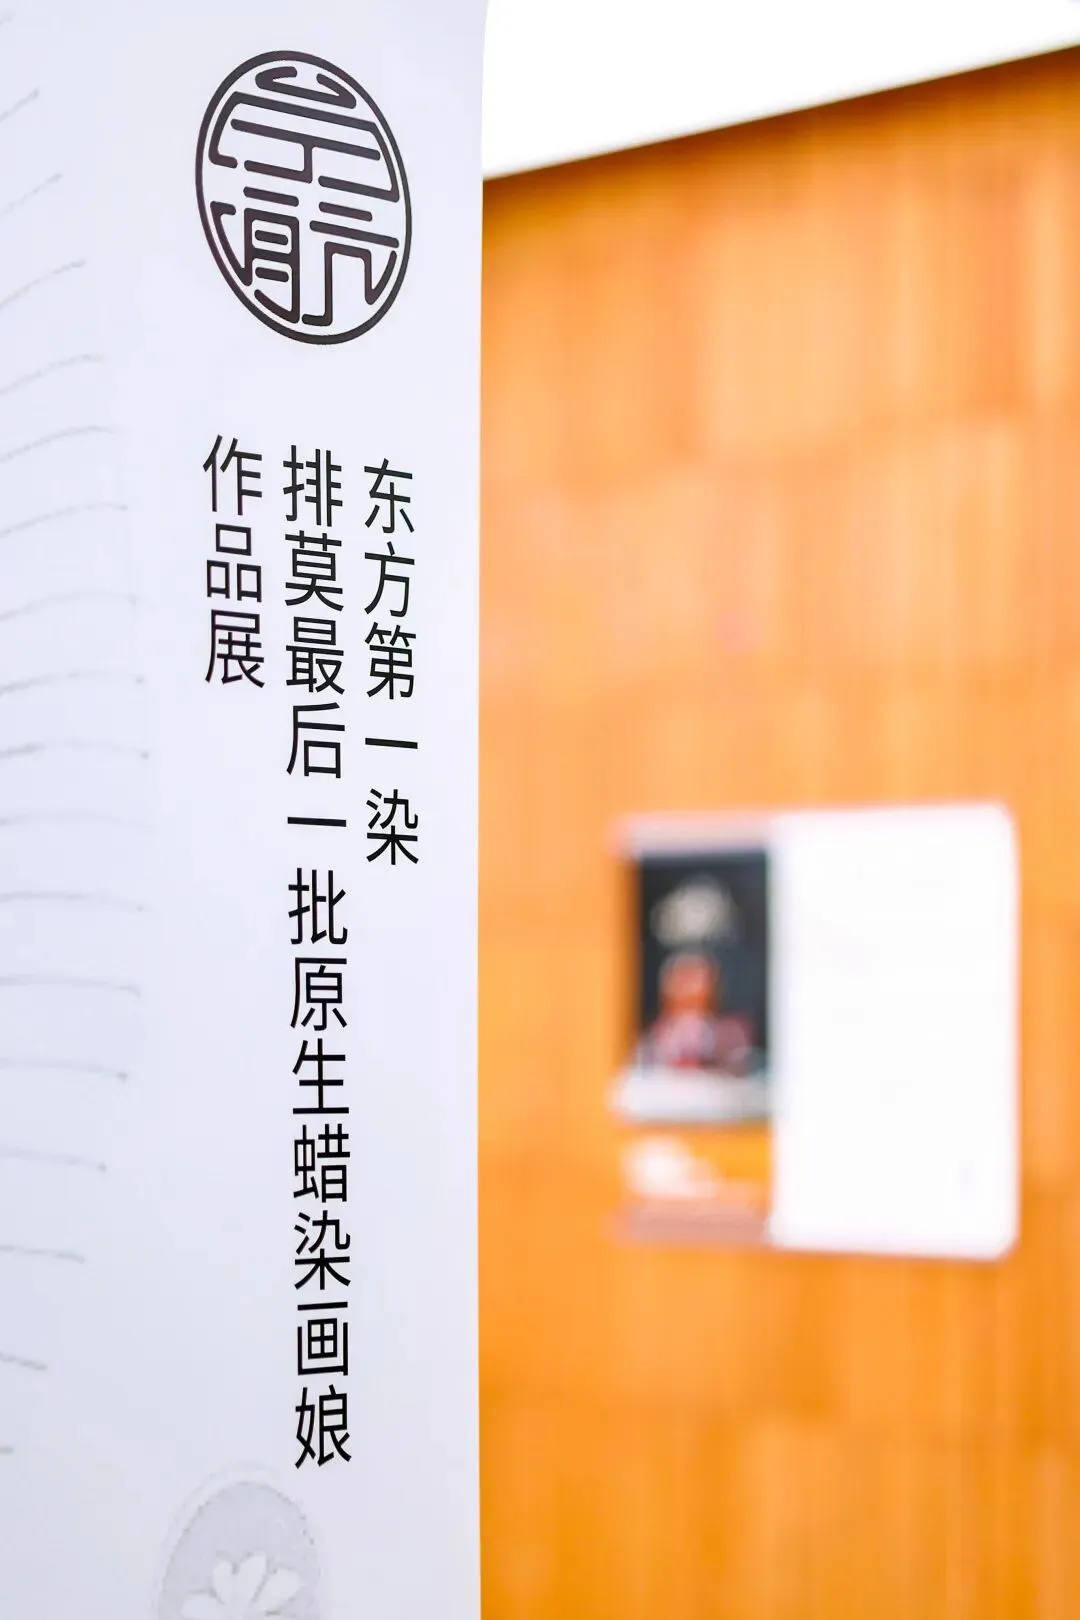 东方第一染
排莫最后一批原生蜡染画娘
作品展